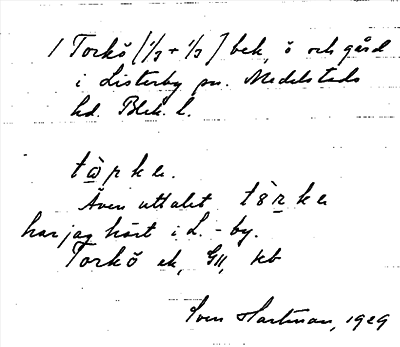 1 Torkö [1/3 + 1/3] bek, ö och gård
i Listerby sn. Medelsteds
hd. Blek. l.
Även uttalet
har jag hört i L. - by.
Torkö ek, GII, kb
Sven Hartman, 1929